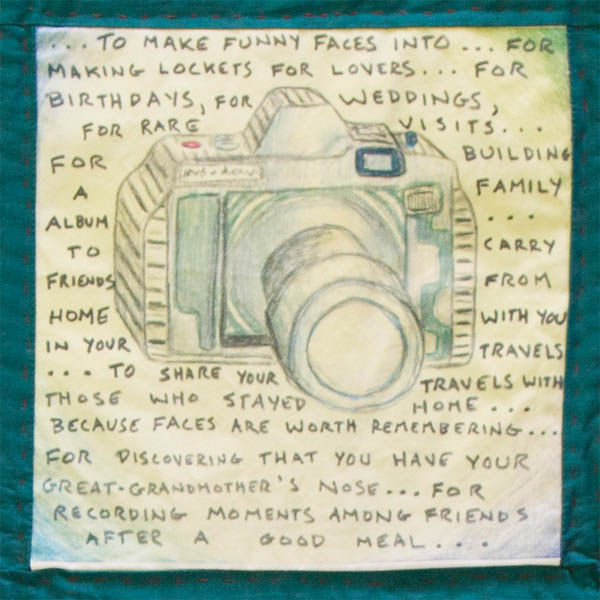 ... TO MAKE FUNNY FACES INTO ... FOR
MAKING LOCKETS FOR LOVERS... FOR
BIRTHDAYS, FOR WEDDINGS,
FOR RARE VISITS...
FOR BUILDING
A FAMILY
ALBUM ...
TO CARRY
FRIENDS FROM
HOME WITH YOU
IN YOUR TRAVELS
... TO SHARE YOUR TRAVELS WITH
THOSE WHO STAYED HOME ...
BECAUSE FACES ARE WORTH REMEMBERING...
FOR DISCOVERING THAT YOU HAVE YOUR
GREAT-GRANDMOTHER'S NOSE... FOR
RECORDING MOMENTS AMONG FRIENDS
AFTER A GOOD MEAL....